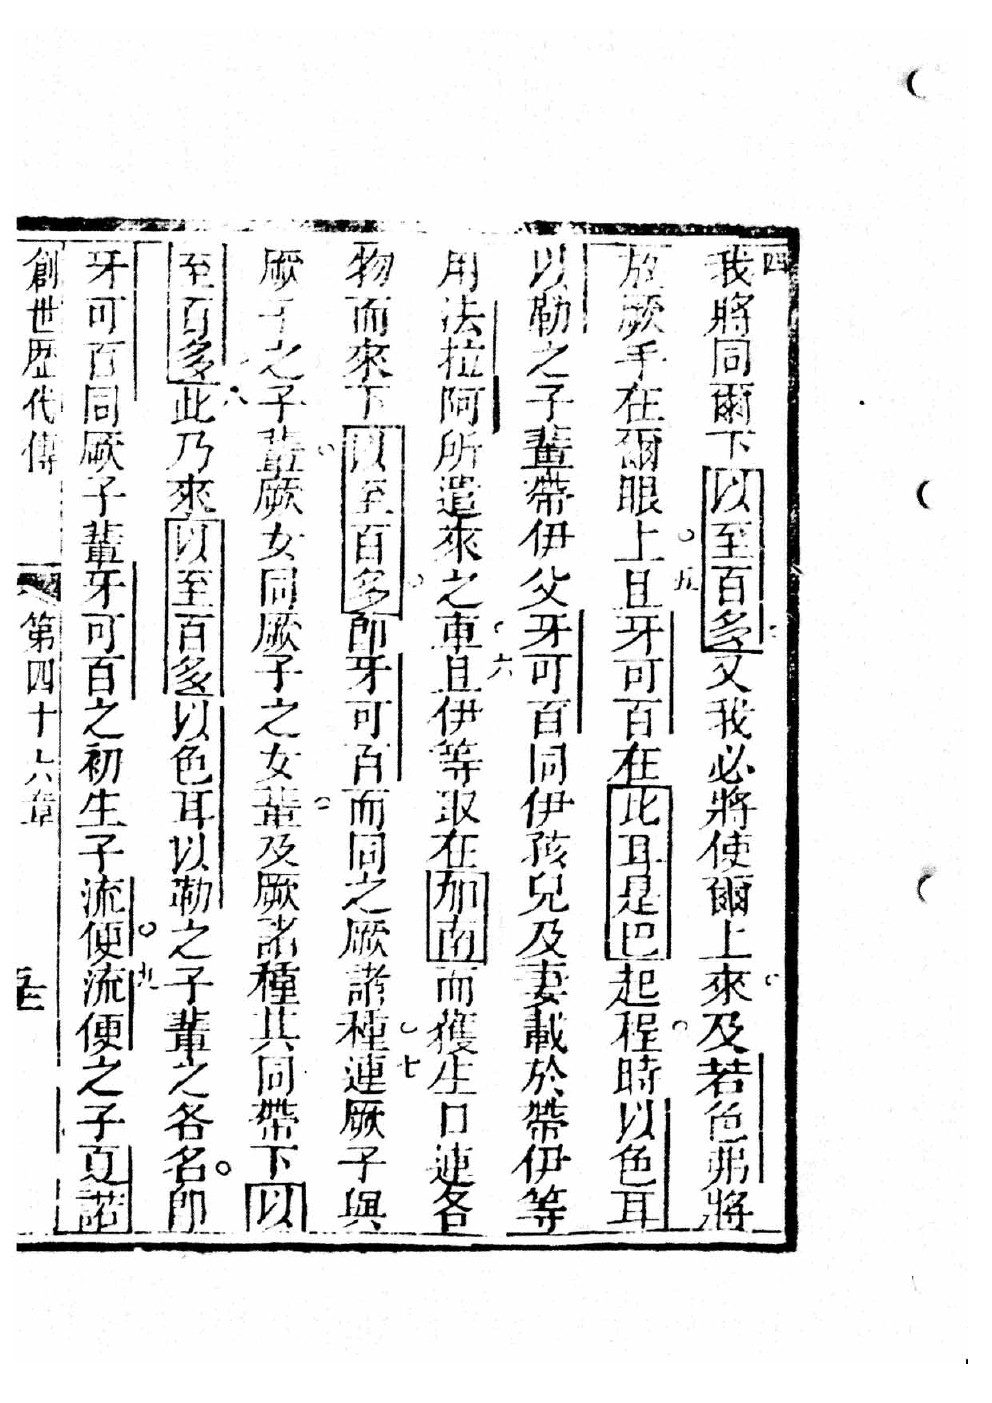 四
我將同爾下以至百多又我必將使爾上來及若色弼將
放厥手在爾眼上五且牙可百在比耳是巴起程時以色耳
以勒之子輩帶伊父牙可百同伊孩兒及妻載於帶伊等
用法拉阿所遣來之車六且伊等取在加南而獲生口連各
物而來下以至百多即牙可百而同之厥諸種七連厥子與
厥子之子輩厥女同厥子之女輩及厥諸種其同帶下以
至百多八此乃來以至百多以色耳以勒之子輩之各名即
牙可百同厥子輩牙可百之初生子流便九流便之子夏諾
創世歷代傳 第四十六章